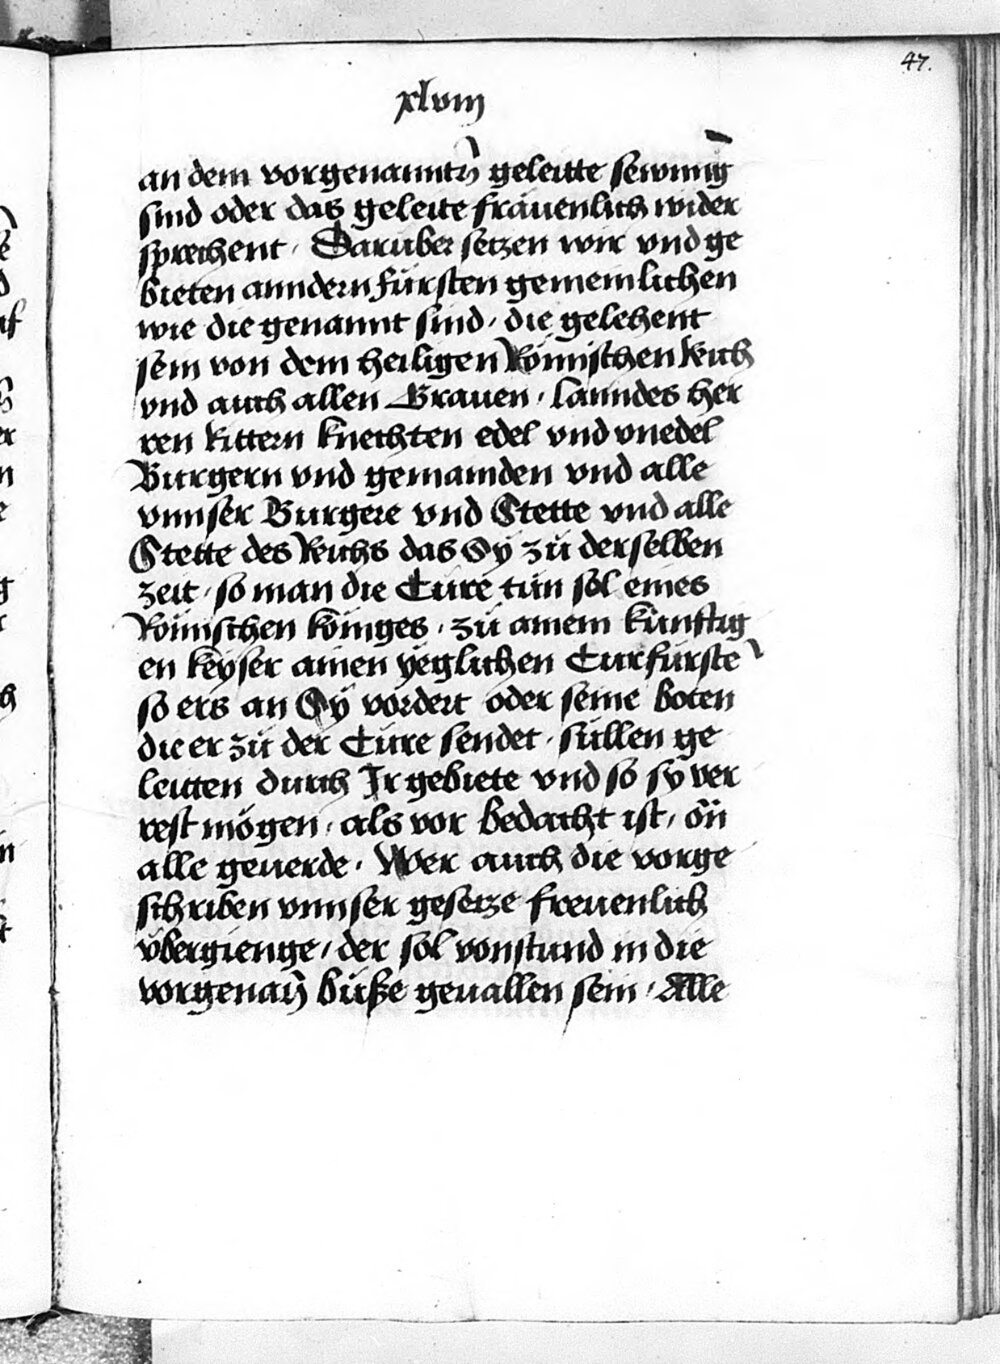 47.
xlviij
an dem vorgenanntñ geleitte sewmig̃
sind oder das geleite fräuenlich wider
sprechent · Darüber setzen wir vnd ge
bieten anndern fürsten gemeinlichen
wie die genannt sind · die gelehent
sein von dem heiligen Römischen Reich
vnd auch allen Grauen · lanndes her
ren Rittern knechten edel vnd vnedel
Burgern vnd gemainden vnd alle
vnnser Burgere vnd Stette vnd alle
Stette des Reichs das Sÿ zů derselben
zeit · so man die Cure tůn sol eines
Römischen königes · zů ainem künfftig
en keyser ainen yeglichen Curfürstẽ
so ers an Sÿ vordert oder seine boten
die er zů der Cure sendet · süllen ge
leitten durch Ir gebiete vnd so sÿ ver
rest mögen · als vor bedacht ist · ön
alle geuerde · Wer auch die vorge
schriben vnnser gesetze freuenlich
übergienge · der sol von stund in die
vorgenañ büße geuallen sein · Alle